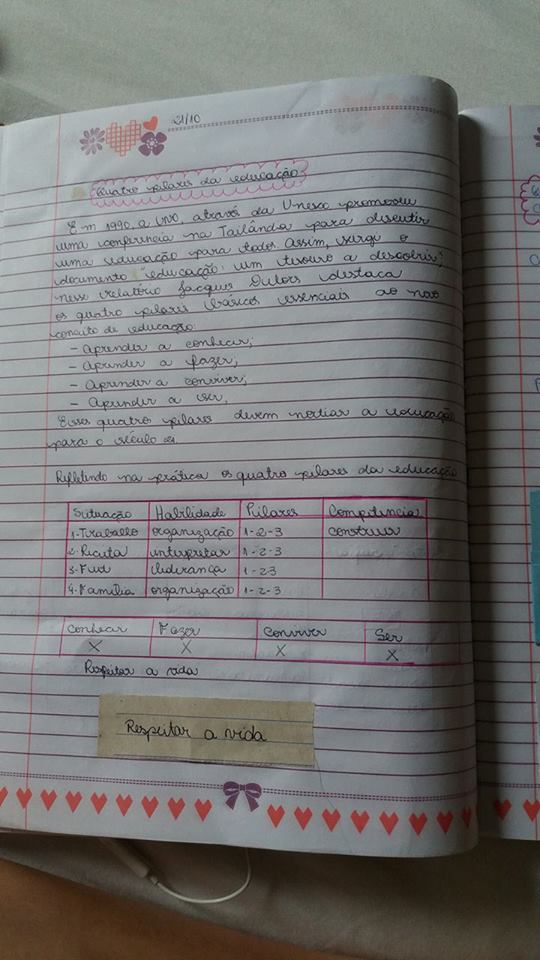 21/10
Quatro pilares da educação
Em 1990, a UNO, através da Unesco promoveu
uma conferencia na Tailândia para discutir
uma educação para todos. Assim, surge o
documento "educação: um tesouro a descobrir",
nesse relatório Jacques Delors destaca
os quatro pilares básicos essenciais ao novo
conceito de educação
- Aprender a conhecer;
- Aprender a fazer;
- Aprender a conviver;
- Aprender a ser.
Esses quatro pilares devem nortiar a educação
para o século 21.
Refletindo na prática os quatro pilares da educação
Situação Habilidade Pilares Competencia
1-Trabalho organização 1-2-3 construir
2-Receita interpretar 1-2-3
3-Fut liderança 1-23
4-Família organização 1-2-3
Conhecer Fazer Conviver Ser
X X X X
Respeitar a vida
Respeitar a vida